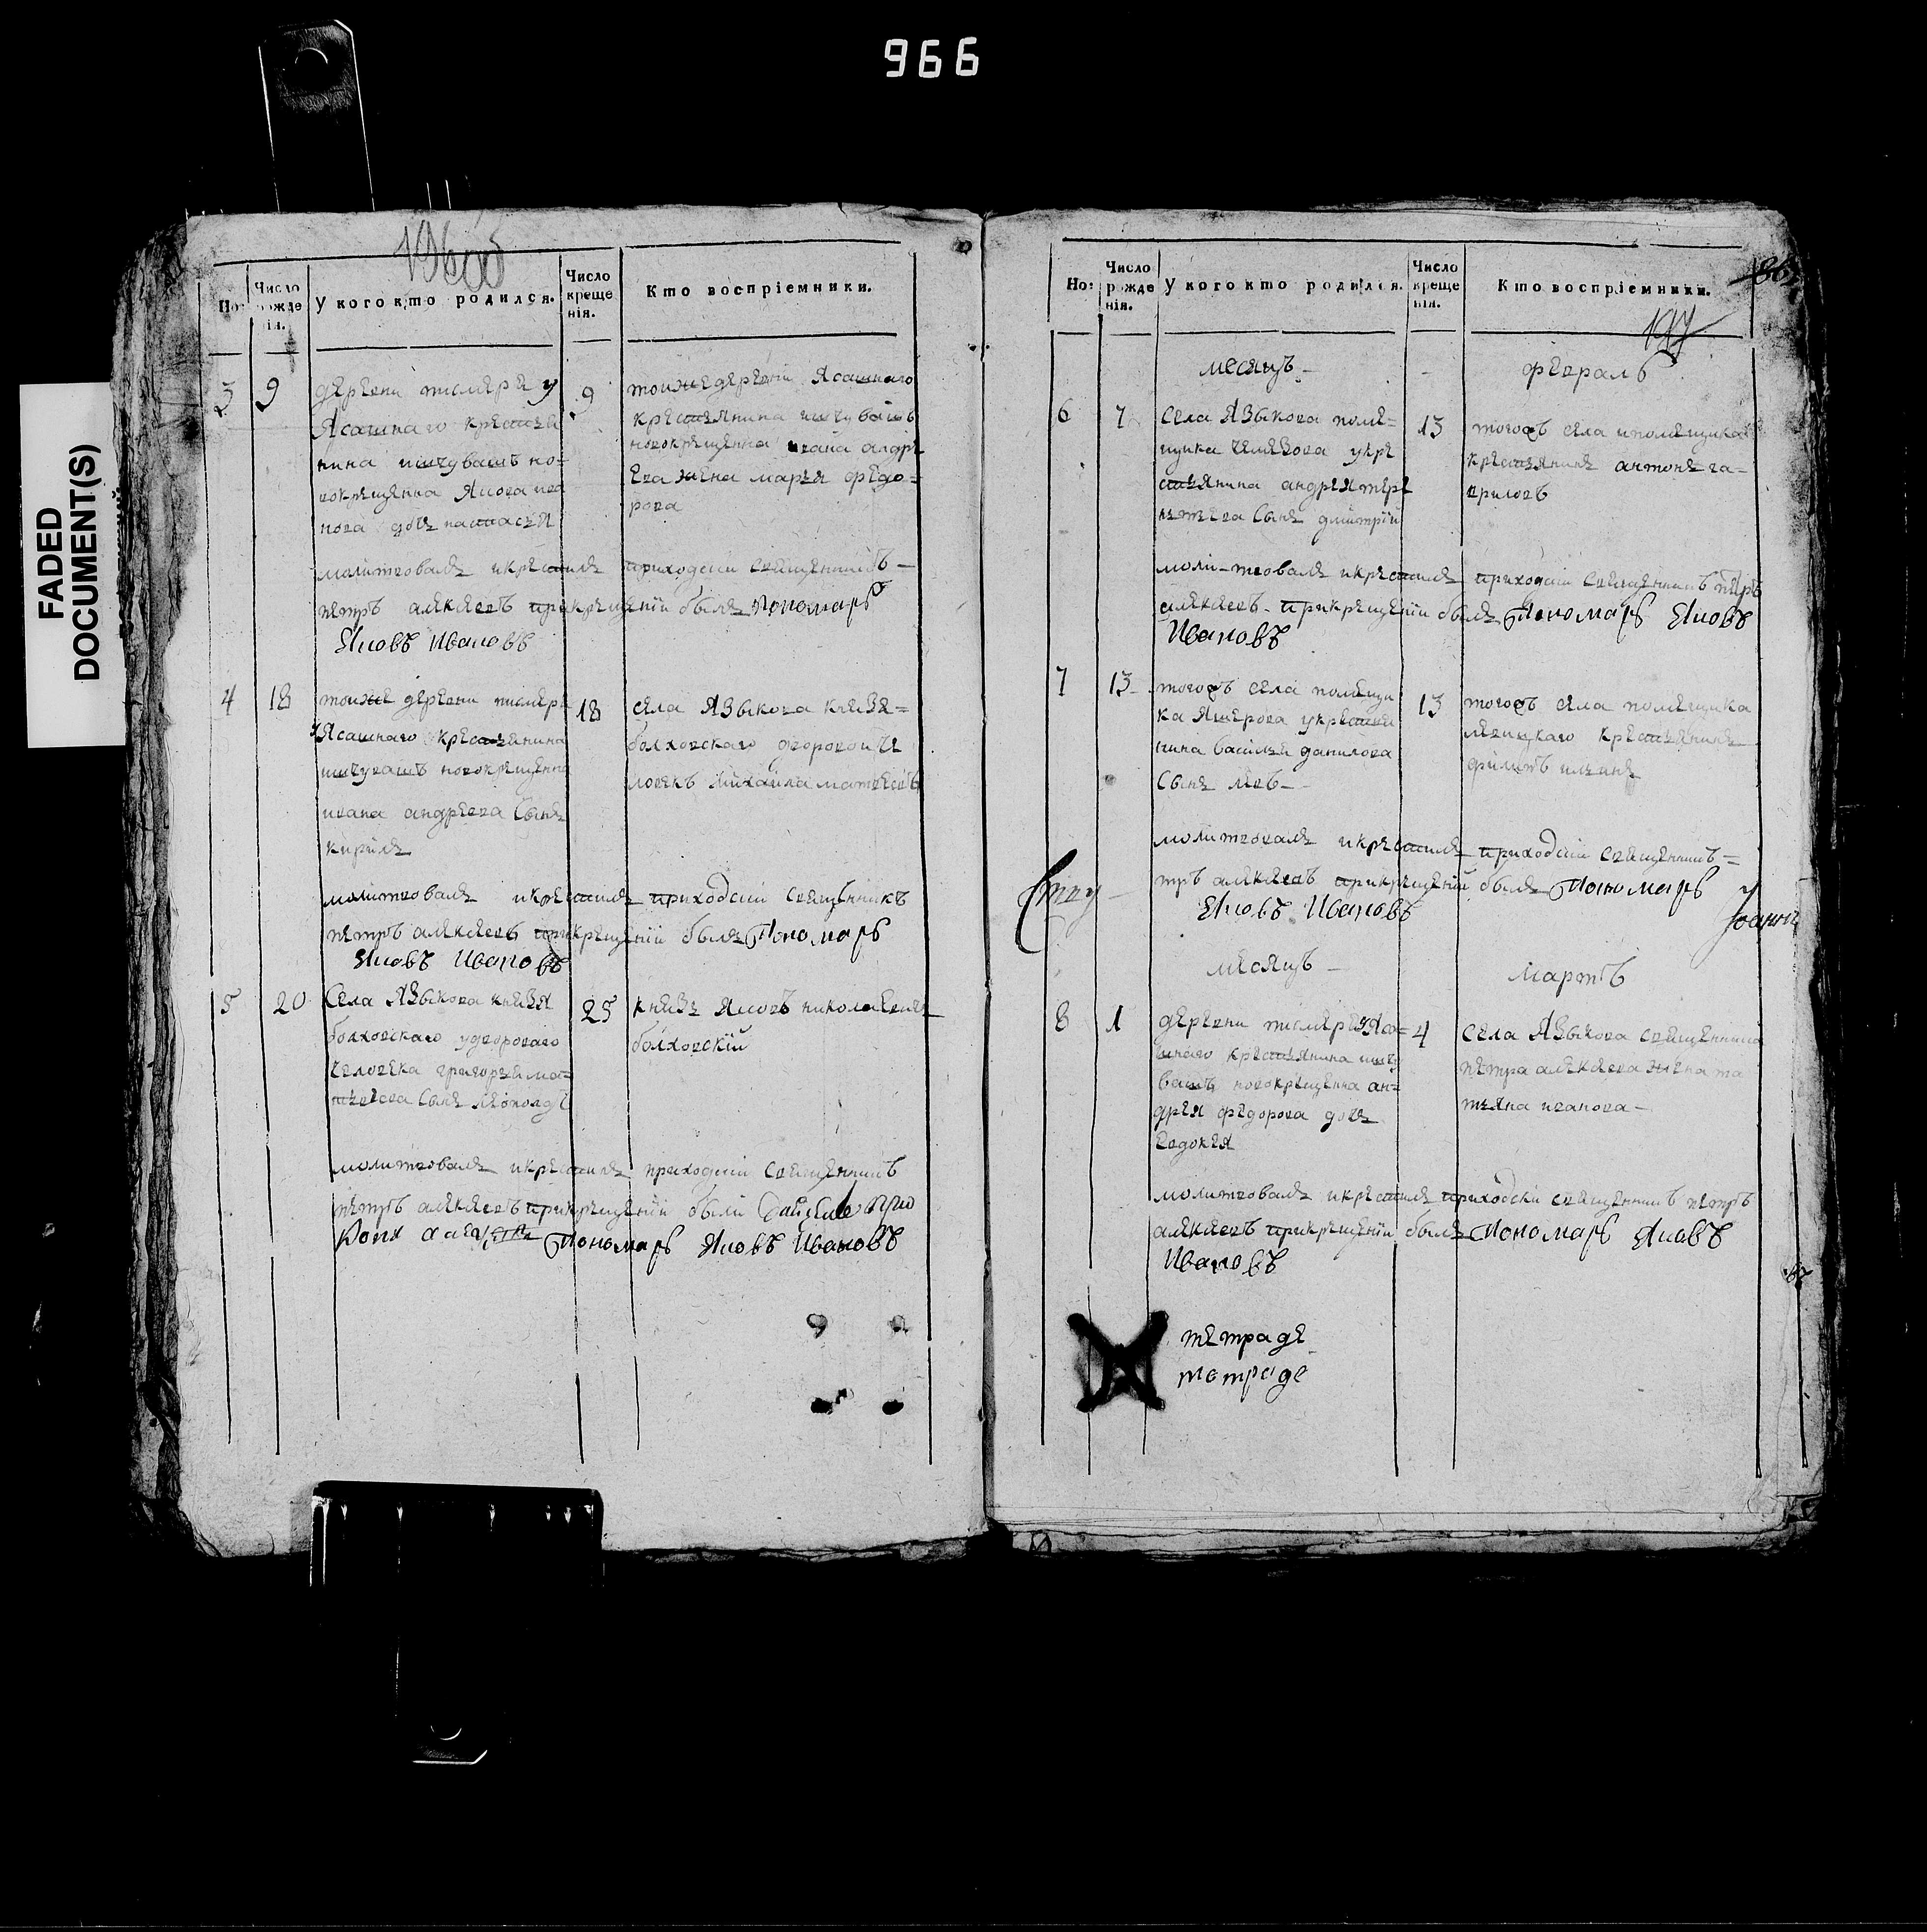 966
FADED
DOCUMENT(S)
Но:
Число рожде нія.
У кого кто родился.
Число креще нія.
Кто воспріемники.
3
9
деревни тислере у
Ясашнаго крестья
нина исчувашъ но-
вокрещенна Якова ива
нова дочь настасья
9
тоиже деревни Ясашнаго
крестьянина исчувашъ
новокрещенна ивана андре
ева жена марья федо-
рова
молитвовалъ икрестилъ приходски священникъ
петръ алексеевъ прикрещении былъ Пономарь
Яковъ Ивановъ
4
18
тоиже деревни тислере
уЯсашнаго крестьянина
исчувашъ новокрещенна
ивана андреева сынъ
кирилъ
18
села Языкова князя-
болховскаго дворовои че
ловекъ михаила матвеевъ
молитвовалъ икрестилъ приходскіи священникъ
петръ алексеевъ прикрещеніи былъ Пономарь
Яковъ Ивановъ
5
20
Села Языкова князя
болховскаго удворового
человека григорья ма-
твеева сынъ леополде
25
князь Яковъ николаевичь
болховскій
молитвовалъ икрестилъ приходскіи священникъ
петръ алексеевъ прикрещеніи были
Пономарь Яковъ Ивановъ
Но:
Число рожде нія.
У кого кто родился.
Число креще нія.
Кто воспріемники.
197
месяцъ -
февраль
6
7
Села Языкова поме-
щика укре
стьянина андрея тере
нтьева сынъ дмитрій
13
тогожъ села ипомещика
крестьянинъ антонъ га-
вриловъ
моли-твовалъ икрестилъ приходскіи священникъ петръ
алексеевъ прикрещеніи былъ Пономарь Яковъ
Ивановъ
7
13
тогожъ села помещи
ка укрестья
нина василья данилова
сынъ лев-
13
тогожъ села помещика
крестьянинъ
филипъ ильинъ
молитвовалъ икрестилъ приходскіи священникъ-
тръ алексеевъ прикрещеніи былъ Пономарь
Яковъ Ивановъ
месяцъ -
мартъ
8
1
деревни тислере уЯса-
шнаго крестьянина исчу
вашъ новокрещенна ан-
дрея федорова дочь
Евдокея
4
Села Языкова священника
петра алексеева жена та
тьяна иванова-
молитвовалъ икрестилъ приходски священникъ петръ
алексеевъ прикрещеніи былъ Пономарь Яковъ
Ивановъ
тетраде
тетраде